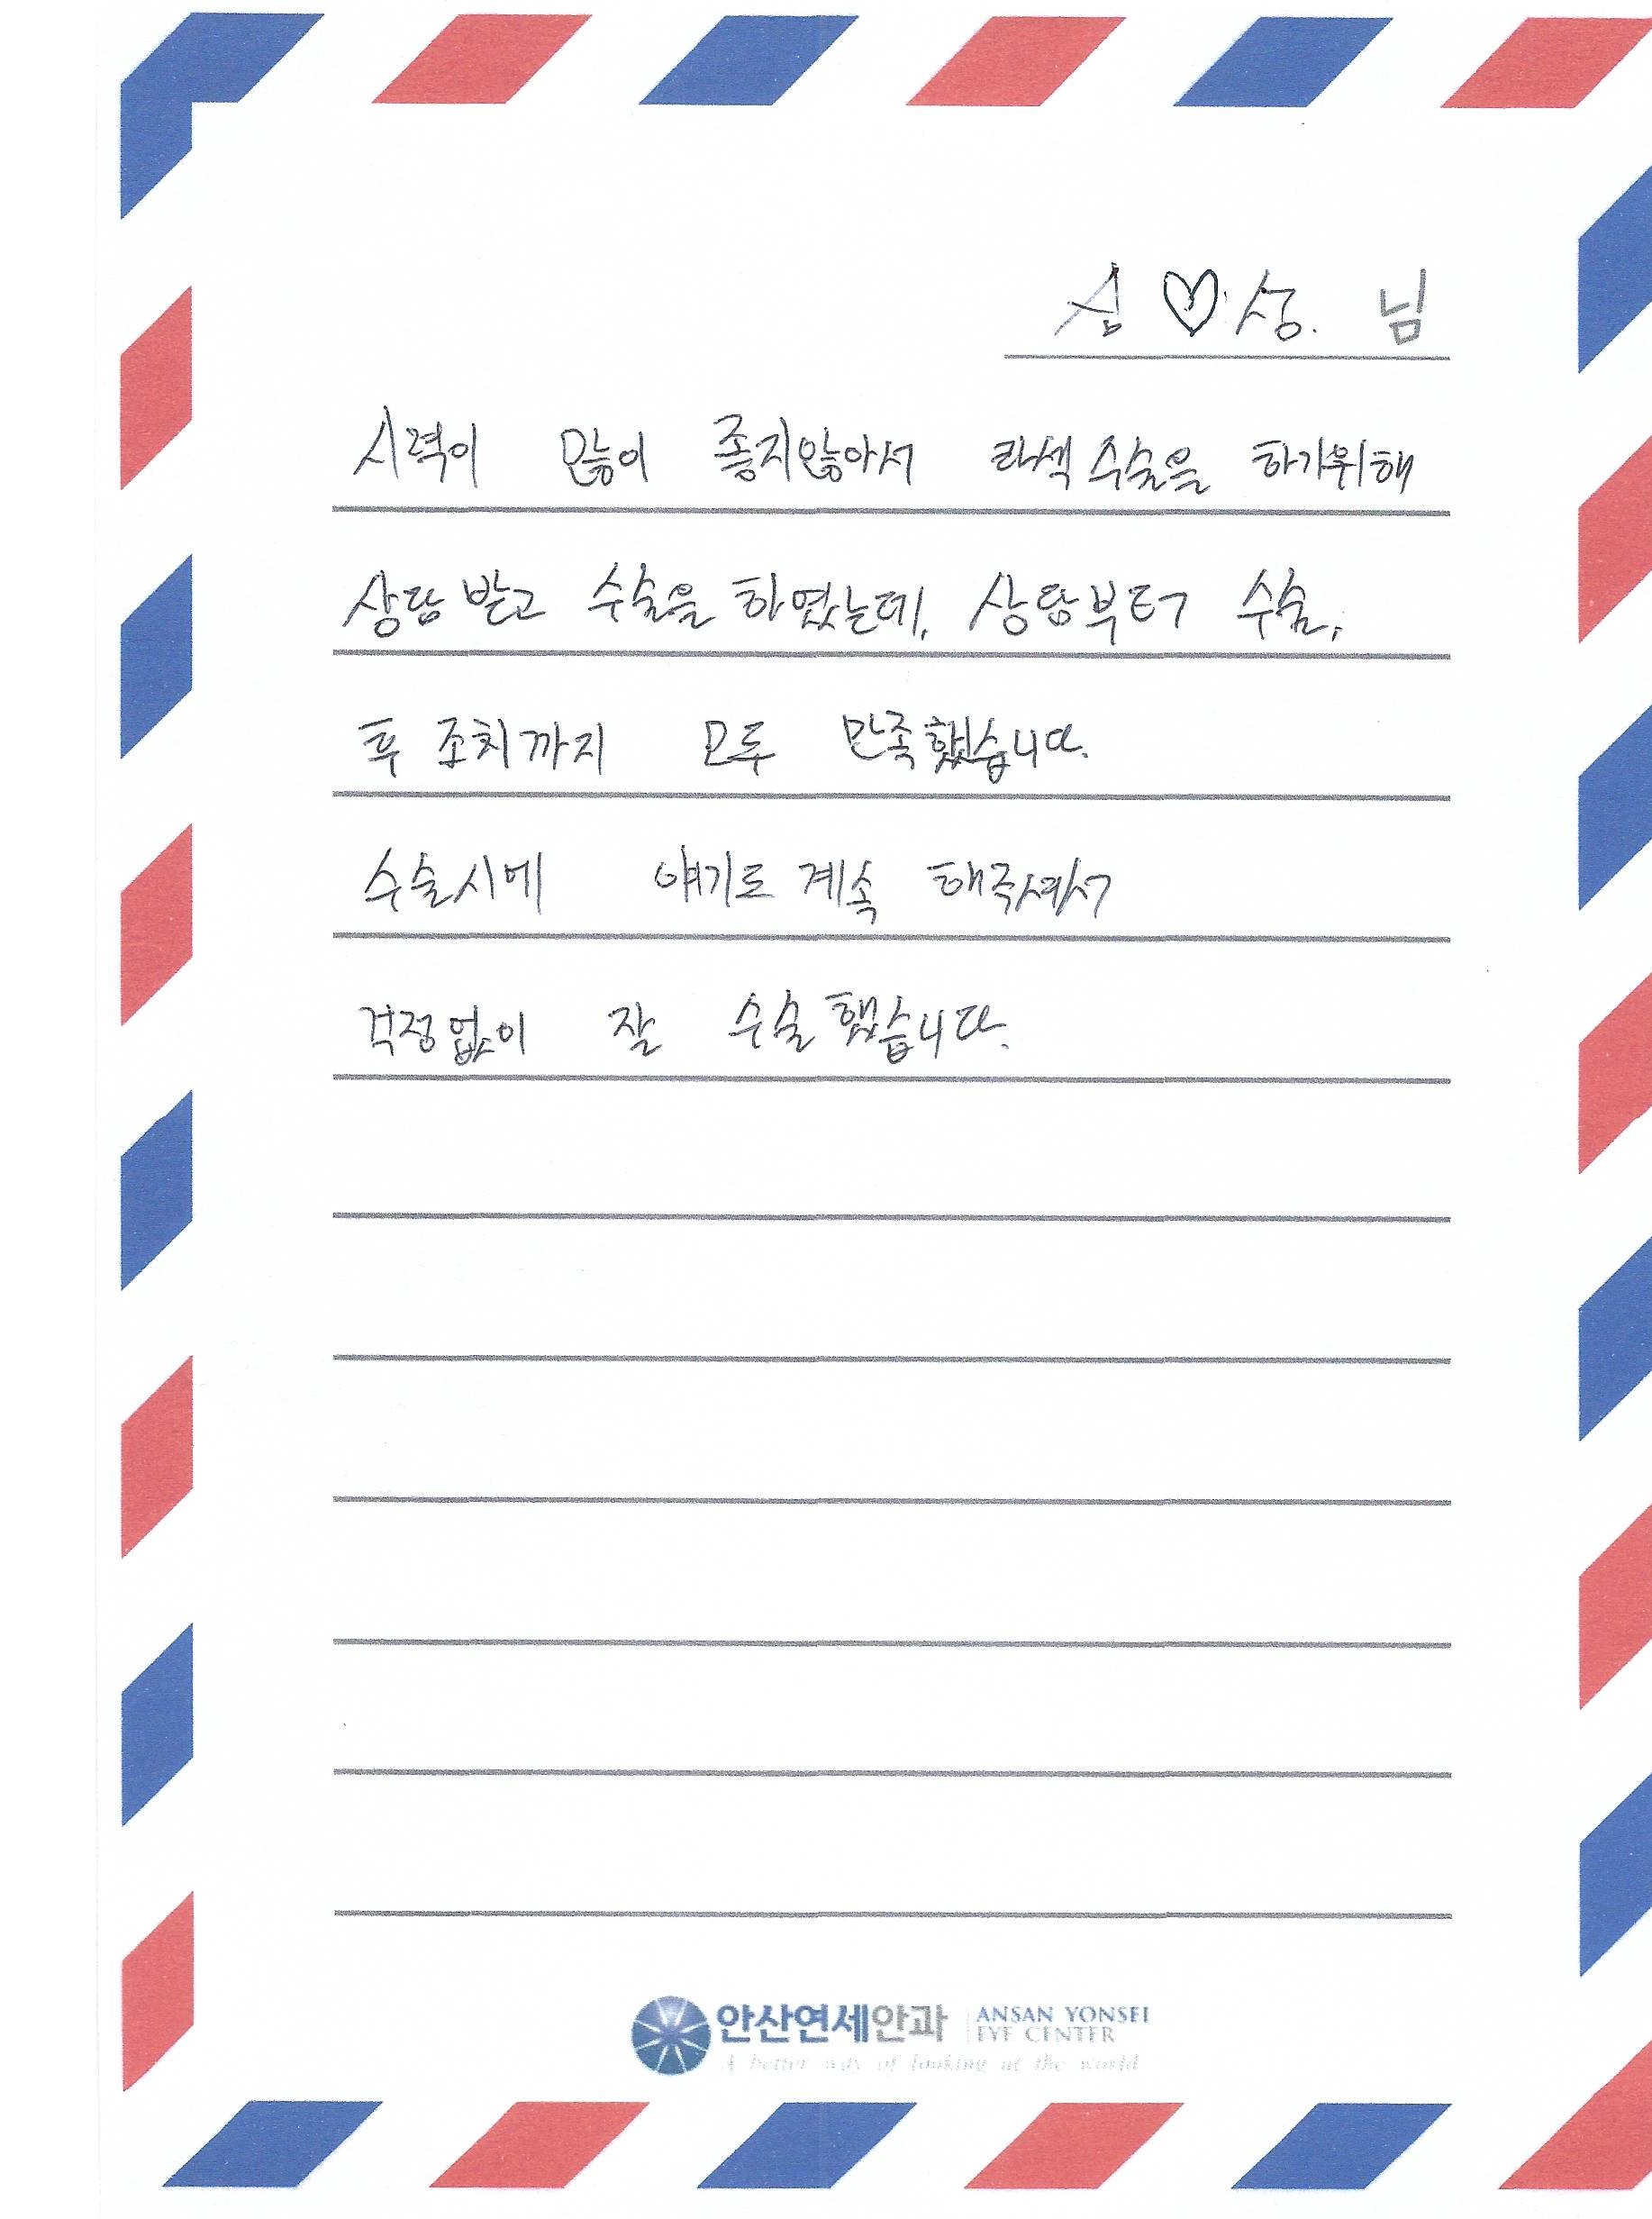 심♡상. 님
시력이 많이 좋지않아서 라섹 수술을 하기위해
상담 받고 수술을 하였는데, 상담부터 수술,
후 조치까지 모두 만족했습니다.
수술시에 얘기도 계속 해주셔서
걱정없이 잘 수술했습니다.
안산연세안과 ANSAN YONSEI
EYE CENTER
A better way of looking at the world